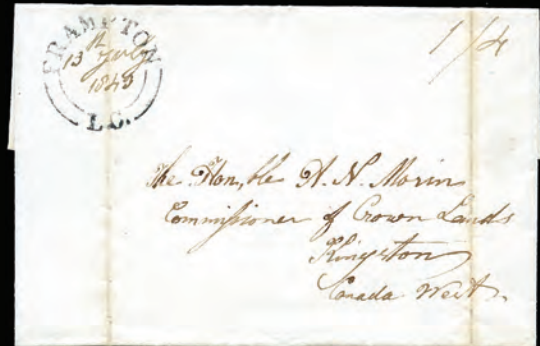 FRAMPTON
13th July
1843
L.C.
1/4
The Hon,ble A. N. Morin
Commissioner of Crown Lands
Kingston
Canada West.